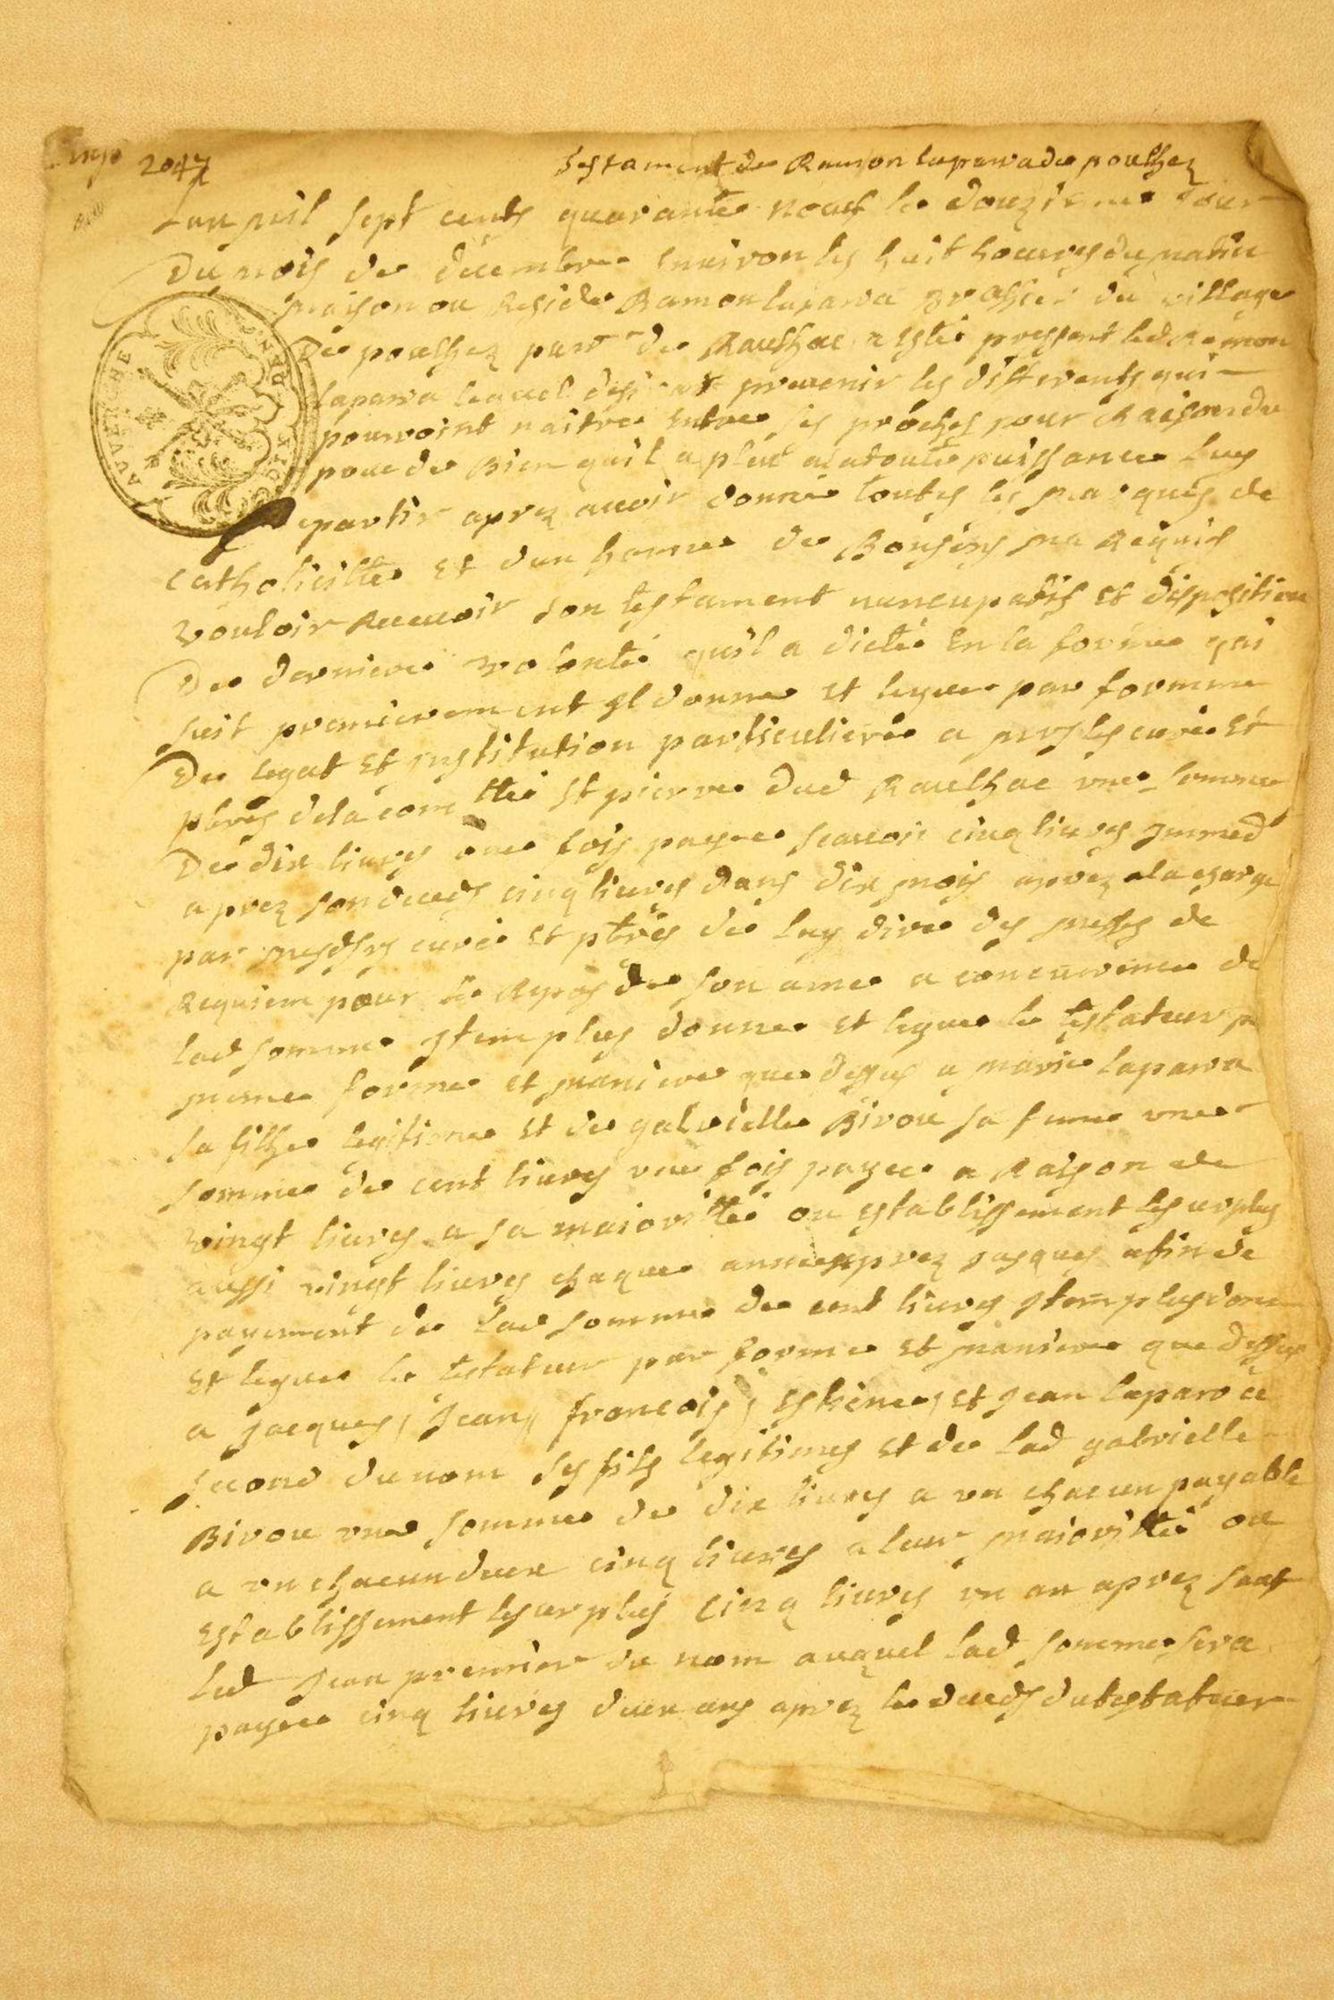 2047
Testament de Ramon laparra de poulhez
Lan mil sept cents quarante neuf le douzieme Jour
Du mois de decembre environ les huit houres du matin
maison ou Reside Ramon laparra brassier du village
De poulhez parr de Raulhac a esté pressent led Ramon
laparra lequel desirant prevenir les differents qui
pourroint naitre Entre ses proches pour Raison du
peu de Bien quil a pleut a la toute puissance luy
departir aprez avoir donné toutes les marques de
Catholicitté Et dun homme de Bon sens ma Requis
vouloir Recevoir son testament nuncupatif Et disposition
De derniere volonté quil a dictée En la forme qui
suit premierement Il donne Et legue par forme
De legat Et Institution particuliere a mrs les curé Et
pbres de la com tté St pierre dud Raulhac une somme
De dix livres une fois payee scavoir cinq livres Immedt
aprez son deceds cinq livres dans dix mois aprez a la charge
par mesdsrs curé Et ptres de luy dire des messes de
Requiem pour le Repos de son ame a concurrence de
lad somme Item plus donne Et legue le testateur
meme forme Et maniere que dessus a marie laparra
sa filhe legitime Et de gabrielle Birou sa fame une
somme de cent livres une fois payee a Raison de
vingt livres a sa maioritté ou establissement le surplus
aussi vingt livres chaque annee aprez jusques a fin de
payement de lad somme de cent livres Item plus donne
Et legue le testateur par forme Et maniere que dessus
a Jacques, Jean, francois, Estiene, et Jean laparra
second du nom ses fils legitimes Et de lad gabrielle
Birou une somme de dix livres a un chacun payable
a un chacun deux cinq livres a leur maioritté ou
Establissement le surplus cinq livres un an aprez sauf
led Jean premier du nom auquel lad somme sera
payee cinq livres deux ans aprez le deceds du testateur
AUVERGNE